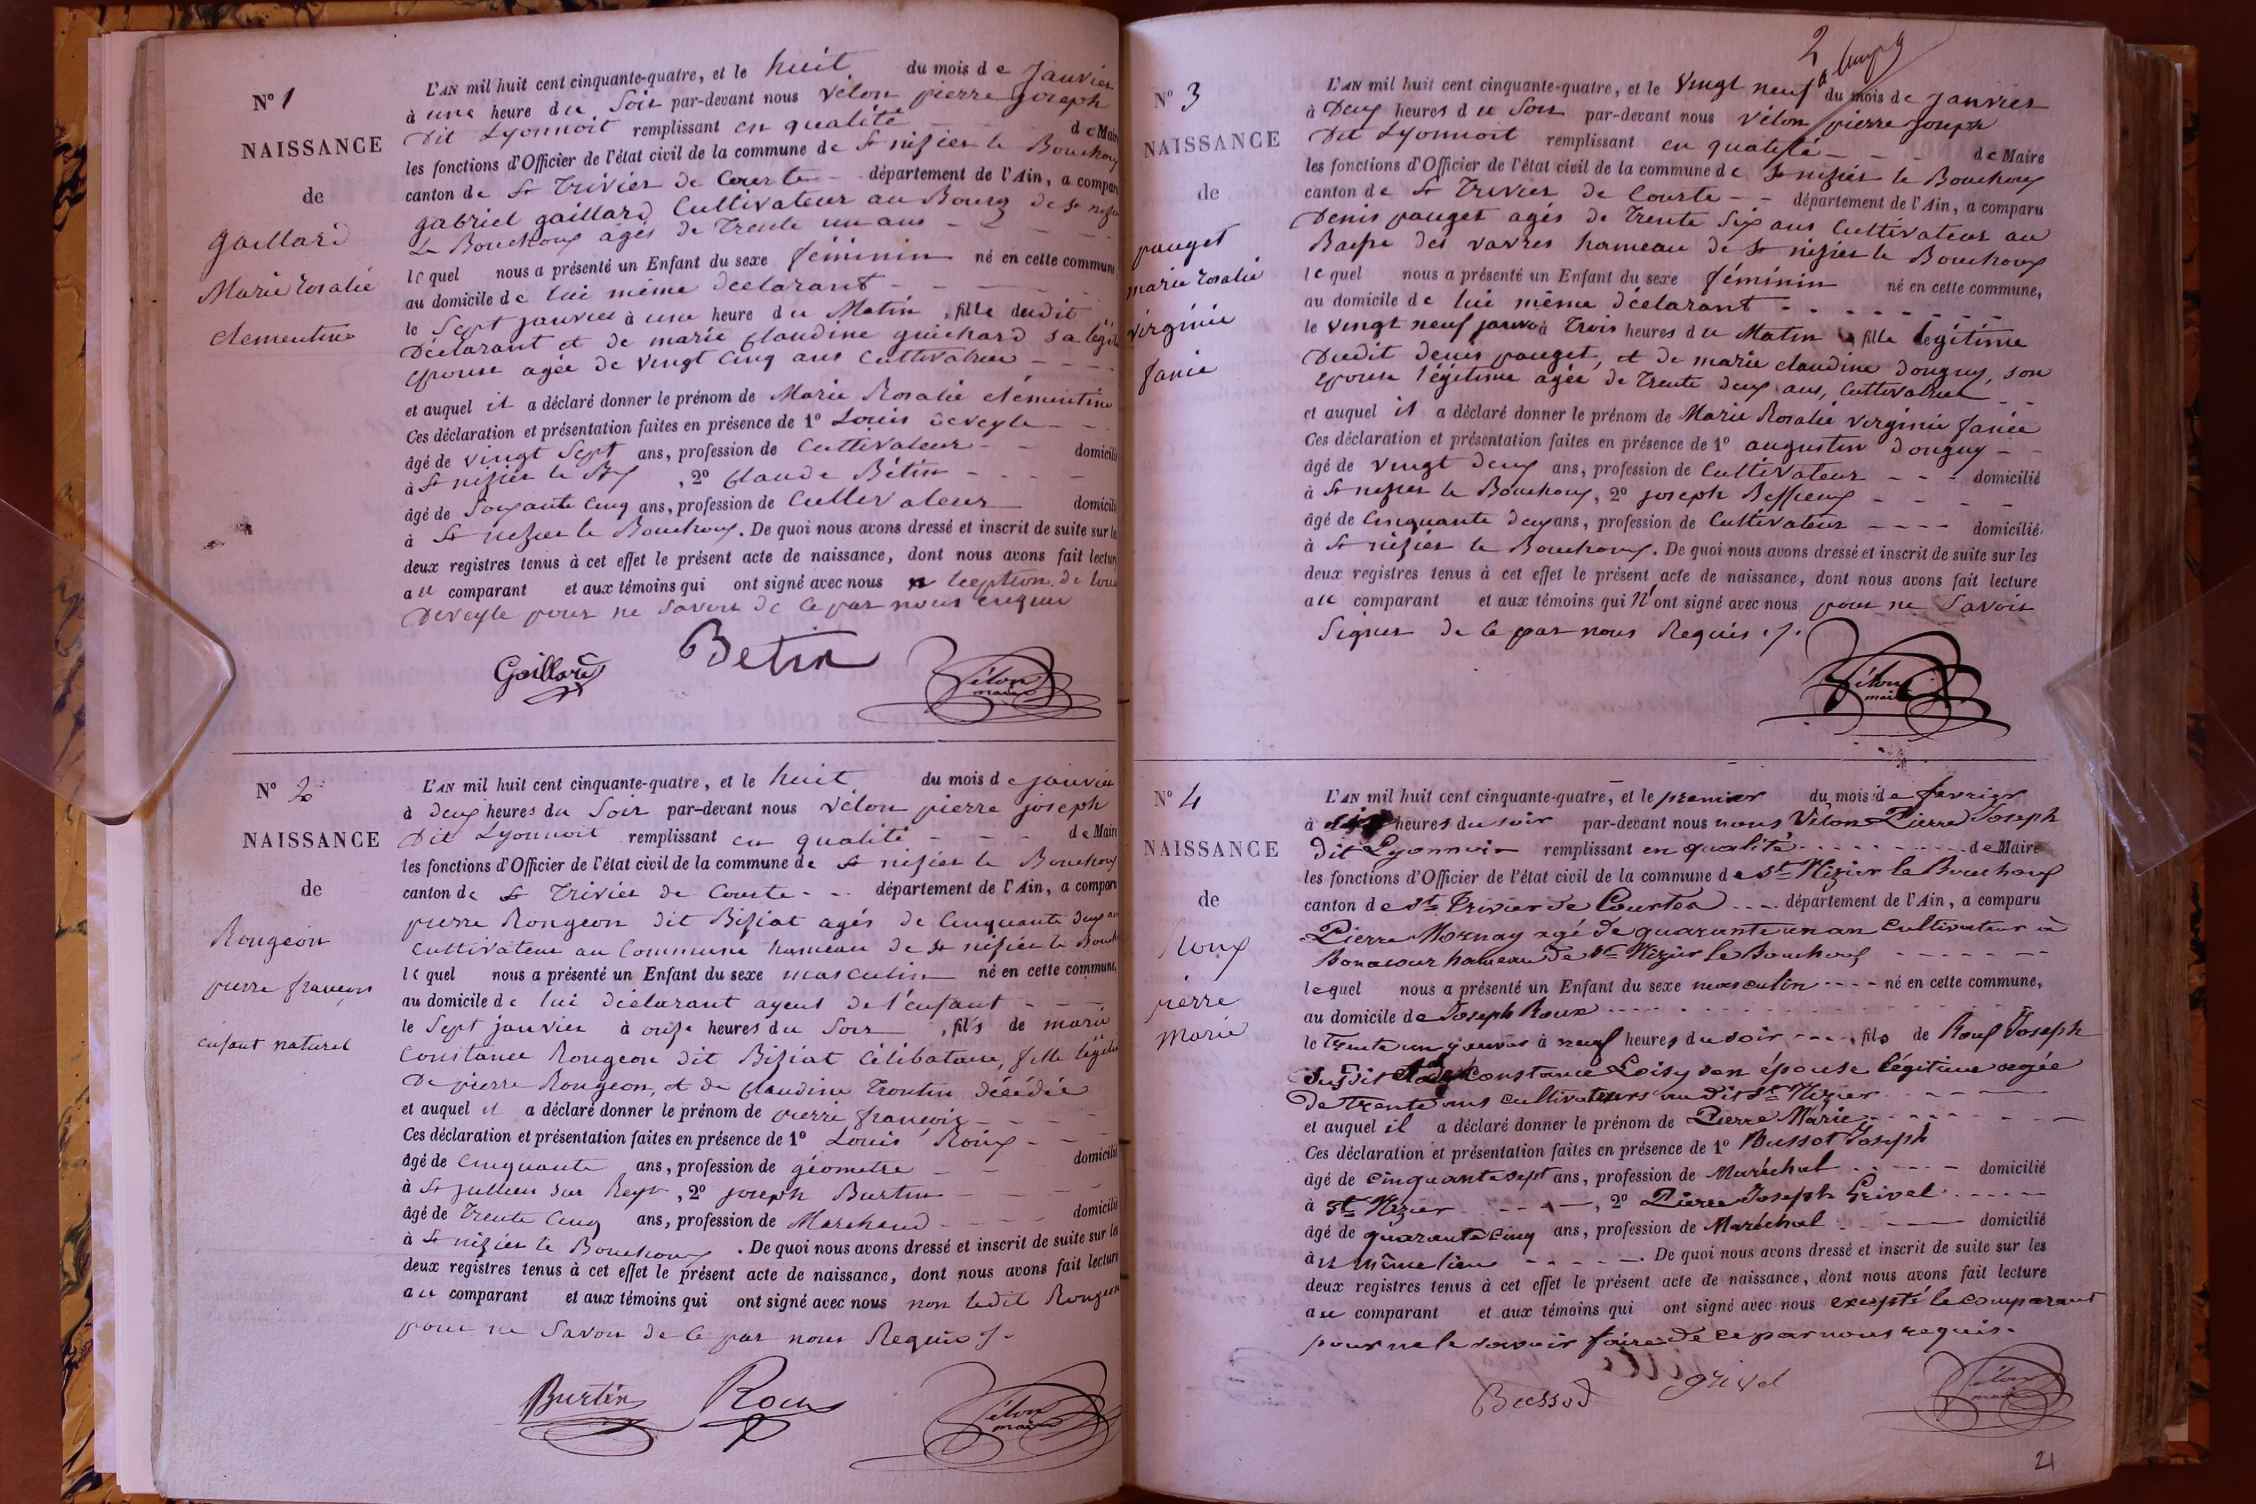 N° 1
NAISSANCE
de
gaillard
Marie rosalie
clementine
L'AN mil huit cent cinquante-quatre, et le huit du mois de janvier
à une heure du Soir par-devant nous vélon pierre joseph
Dit Lyonnoit remplissant en qualité de Maire
les fonctions d'Officier de l'état civil de la commune de St nisier le Bouchoux
canton de St Trivier de Courte département de l'Ain, a comparu
gabriel gaillard Cultivateur au Bourg de St nizier
le Bouchoux agés de Trente un ans
lequel nous a présenté un Enfant du sexe féminin né en cette commune
au domicile de lui même déclarant
le Sept janvier à une heure du Matin, fille dudit
Déclarant et de marie claudine guichard sa légit
epouse agée de vingt Cinq ans Cultivatrice
et auquel il a déclaré donner le prénom de Marie Rosalie clémentine
Ces déclaration et présentation faites en présence de 1° Louis deveyle
âgé de vingt Sept ans, profession de Cultivateur domicilié
à St nizier le Bx, 2° Claude Bétin
âgé de Soixante Cinq ans, profession de Cultivateur domicilié
à St nizier le Bouchoux. De quoi nous avons dressé et inscrit de suite sur les
deux registres tenus à cet effet le présent acte de naissance, dont nous avons fait lecture
au comparant et aux témoins qui ont signé avec nous de Louis
Deveyle pour ne Savoir de Ce par nous enquis
Gaillard Betin Vélon
maire
N° 2
NAISSANCE
de
Rongeon
pierre françois
enfant naturel
L'AN mil huit cent cinquante-quatre, et le huit du mois de janvier
à deux heures du Soir par-devant nous vélon pierre joseph
Dit Lyonnoit remplissant en qualité de Maire
les fonctions d'Officier de l'état civil de la commune de St nizier le Bouchoux
canton de St Trivier de Courte département de l'Ain, a comparu
pierre Rongeon dit Bifiat agés de Cinquante deux ans
Cultivateur au Commune hameau de St nizier le Bouch
lequel nous a présenté un Enfant du sexe masculin né en cette commune,
au domicile de lui déclarant ayeul de l'enfant
le Sept janvier à onze heures du Soir, fils de marie
Constance Rongeon dit Bifiat Célibataire, fille légitime
De pierre Rongeon, et de Claudine Trontin décédée
et auquel il a déclaré donner le prénom de pierre françois
Ces déclaration et présentation faites en présence de 1° Louis Roux
âgé de Cinquante ans, profession de géometre domicilié
à St jullien sur Reys, 2° joseph Burtin
âgé de Trente Cinq ans, profession de Marchand domicilié
à St nizier le Bouchoux. De quoi nous avons dressé et inscrit de suite sur les
deux registres tenus à cet effet le présent acte de naissance, dont nous avons fait lecture
au comparant et aux témoins qui ont signé avec nous non ledit Rongeon
pour ne Savoir de Ce par nous Requis
Burtin Roux Vélon
maire
2
N° 3
NAISSANCE
de
pauget
marie rosalie
virginie
fanie
L'AN mil huit cent cinquante-quatre, et le vingt neuf du mois de janvier
à Deux heures du Soir par-devant nous vélon pierre joseph
Dit Lyonnoit remplissant en qualité de Maire
les fonctions d'Officier de l'état civil de la commune de St nizier le Bouchoux
canton de St Trivier de Courte département de l'Ain, a comparu
Denis pauget agés de Trente Six ans Cultivateur au
Basse des vavres hameau de St nizier le Bouchoux
lequel nous a présenté un Enfant du sexe féminin né en cette commune,
au domicile de lui même déclarant
le vingt neuf janvier à Trois heures du Matin fille légitime
Dudit denis pauget, et de marie claudine donguy, son
epouse légitime agée de Trente deux ans, Cultivatrice
et auquel il a déclaré donner le prénom de Marie Rosalie virginie fanie
Ces déclaration et présentation faites en présence de 1° augustin donguy
âgé de vingt deux ans, profession de Cultivateur domicilié
à St nizier le Bouchoux, 2° joseph Beffieux
âgé de Cinquante deux ans, profession de Cultivateur domicilié
à St nizier le Bouchoux. De quoi nous avons dressé et inscrit de suite sur les
deux registres tenus à cet effet le présent acte de naissance, dont nous avons fait lecture
au comparant et aux témoins qui n'ont signé avec nous pour ne Savoir
Signer de Ce par nous Requis
Vélon
maire
N° 4
NAISSANCE
de
Roux
pierre
marie
L'AN mil huit cent cinquante-quatre, et le premier du mois de fevrier
à heures du soir par-devant nous nous Vélon Pierre Joseph
dit Lyonnois remplissant en qualité de Maire
les fonctions d'Officier de l'état civil de la commune de St Nizier le Bouchoux
canton de St Trivier de Courtes département de l'Ain, a comparu
Pierre Mornay agé de quarante un an cultivateur à
Bonacour hameau de St Nizier le Bouchoux
lequel nous a présenté un Enfant du sexe masculin né en cette commune,
au domicile de Joseph Roux
le Trente un janvier à neuf heures du soir, fils de Roux Joseph
Susdit de Constance Loisy son épouse légitime agée
de trente ans cultivateurs au dit St Nizier
et auquel il a déclaré donner le prénom de Pierre Marie
Ces déclaration et présentation faites en présence de 1° Bussot Joseph
âgé de cinquante sept ans, profession de Maréchal domicilié
à St Nizier, 2° Pierre Joseph Grivel
âgé de quarante cinq ans, profession de Maréchal domicilié
à même lieu. De quoi nous avons dressé et inscrit de suite sur les
deux registres tenus à cet effet le présent acte de naissance, dont nous avons fait lecture
au comparant et aux témoins qui ont signé avec nous excepté le comparant
pour ne le savoir faire de ce par nous requis.
Bussod grivel Vélon
maire
21